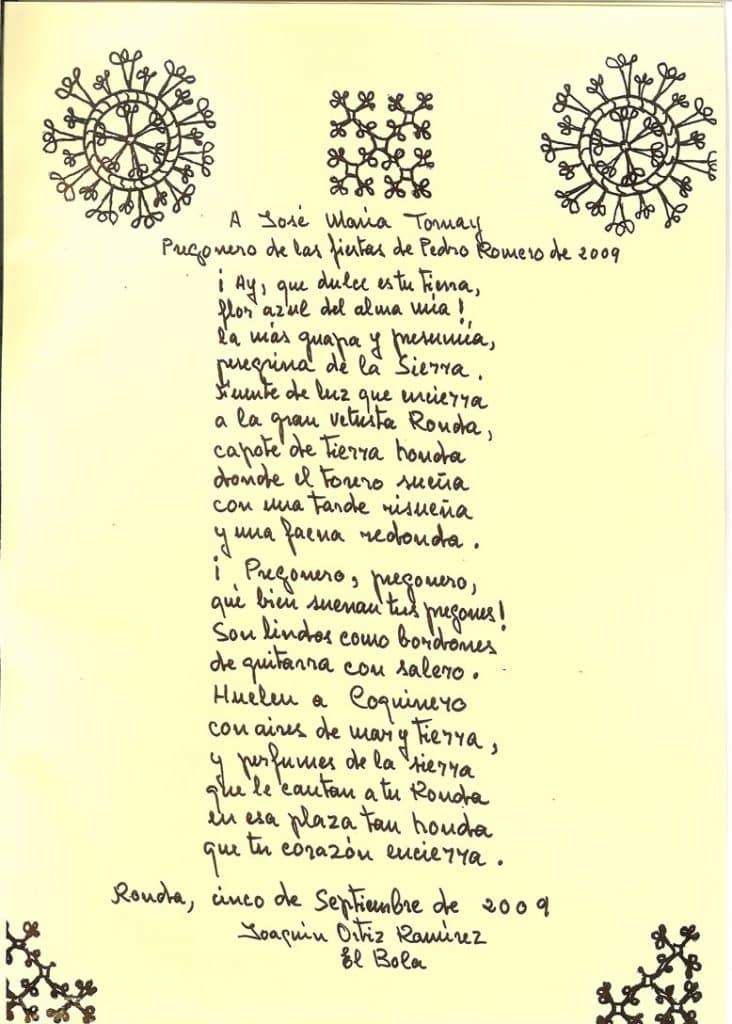 A José María Tornay
Pregonero de las fiestas de Pedro Romero de 2009
¡Ay, que dulce es tu tierra,
flor azul del alma mía!
la más guapa y presumía,
peregrina de la Sierra.
Fuente de luz que encierra
a la gran vetusta Ronda,
capote de tierra honda
donde el torero sueña
con una tarde risueña
y una faena redonda.
¡Pregonero, pregonero,
qué bien suenan tus pregones!
Son lindos como bordones
de guitarra con salero.
Huelen a Coquinero
con aires de mar y tierra,
y perfumes de la sierra
que le cantan a tu Ronda
en esa plaza tan honda
que tu corazón encierra.
Ronda, cinco de Septiembre de 2009
Joaquín Ortiz Ramírez
El Bola